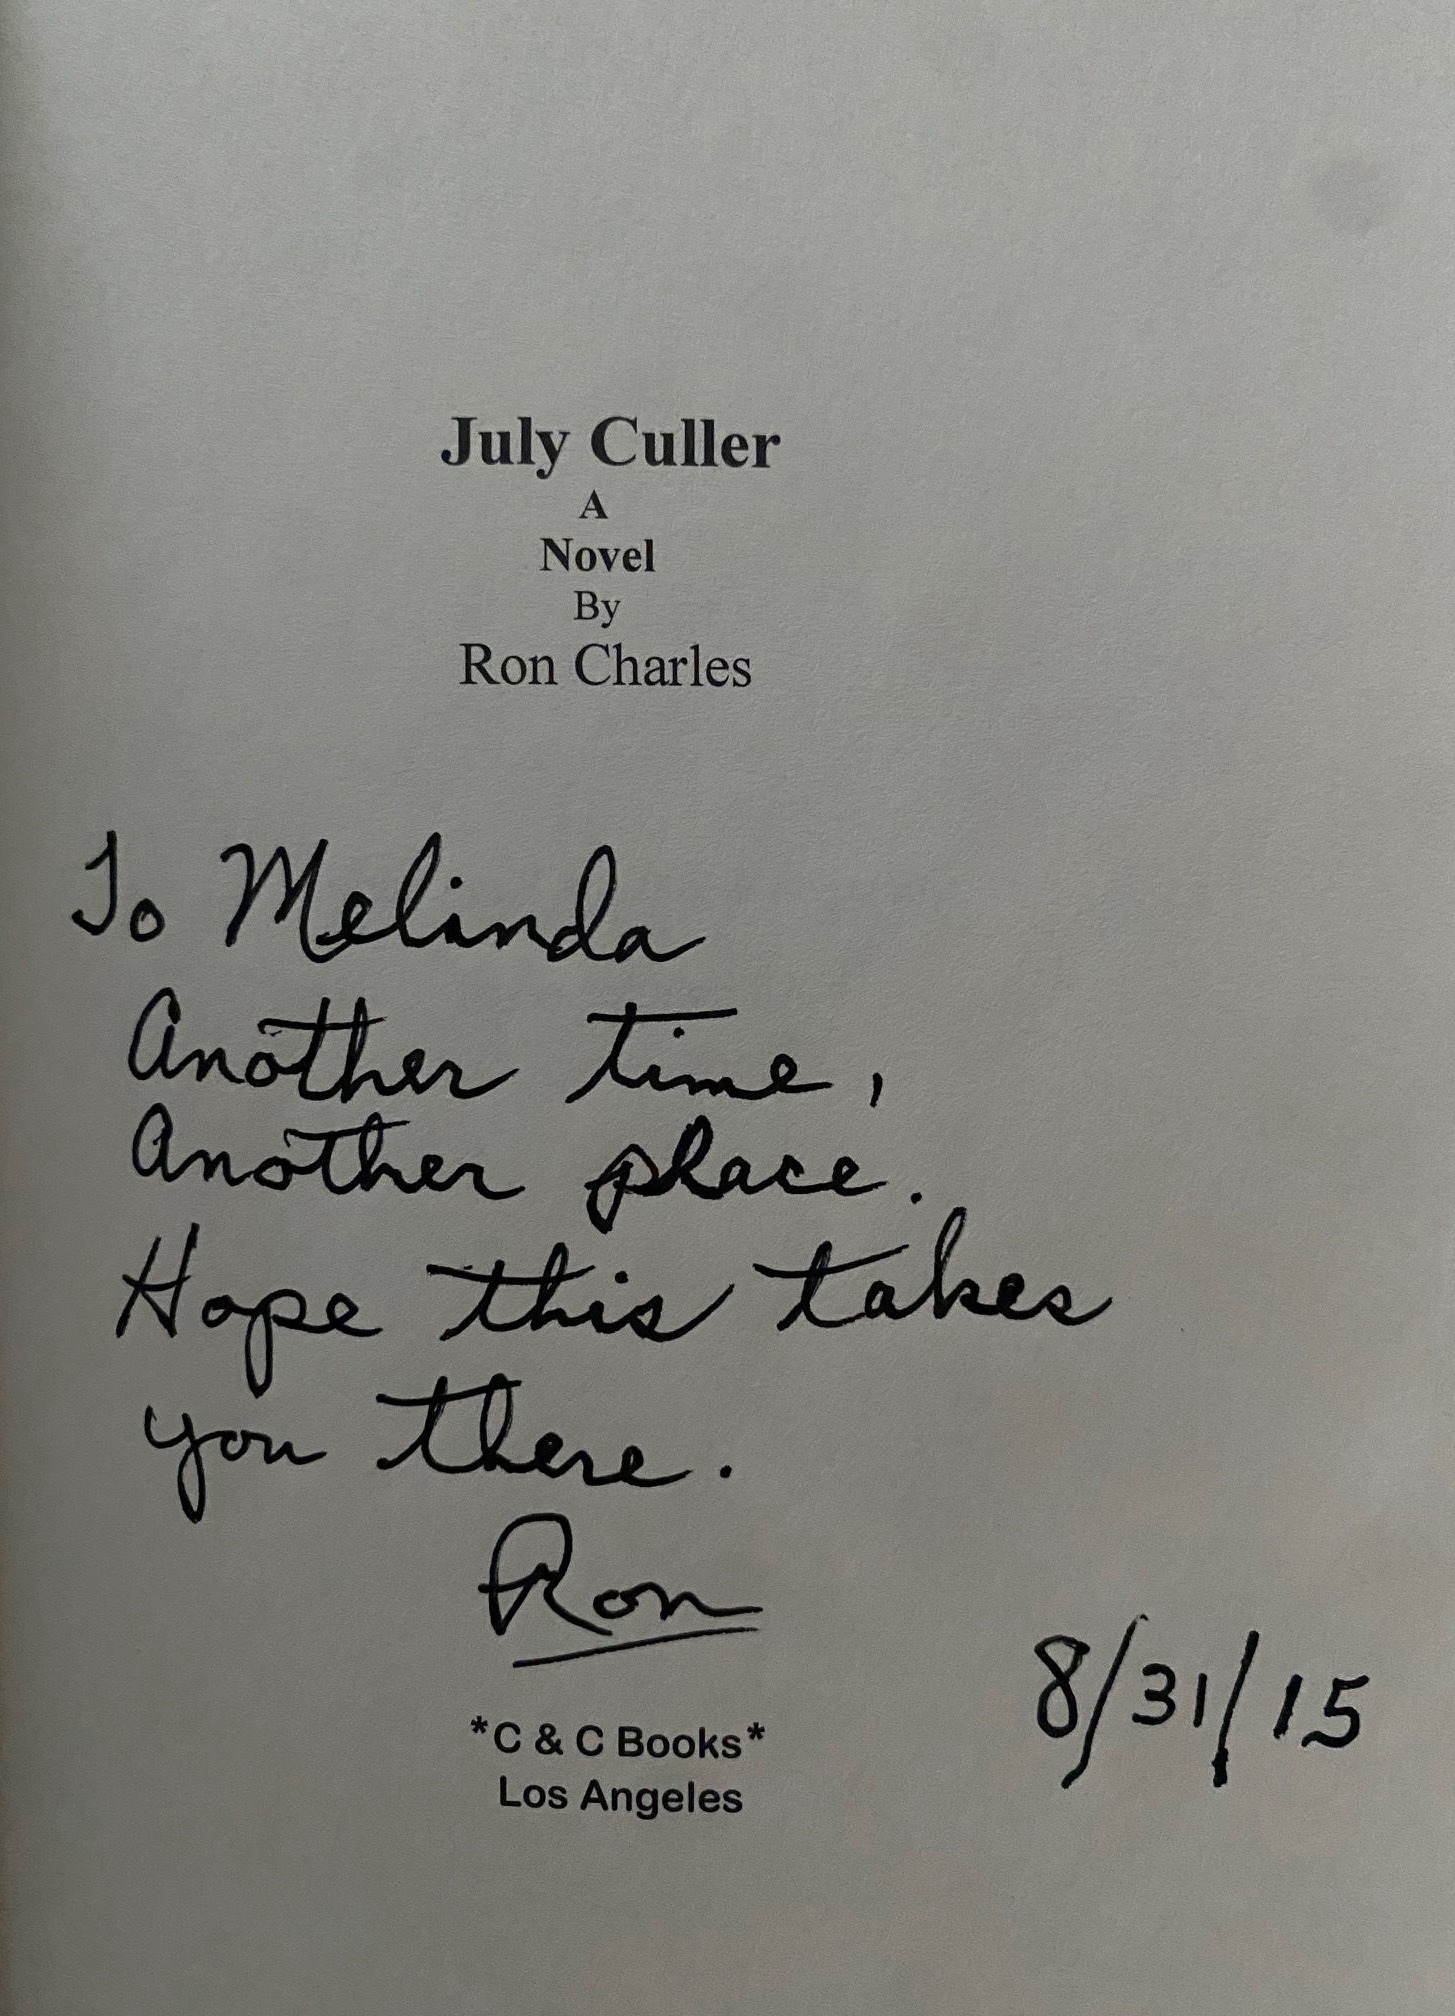 July Culler
A
Novel
By
Ron Charles
To Melinda
Another time,
Another place.
Hope this takes
you there.
Ron
8/31/15
*C & C Books*
Los Angeles